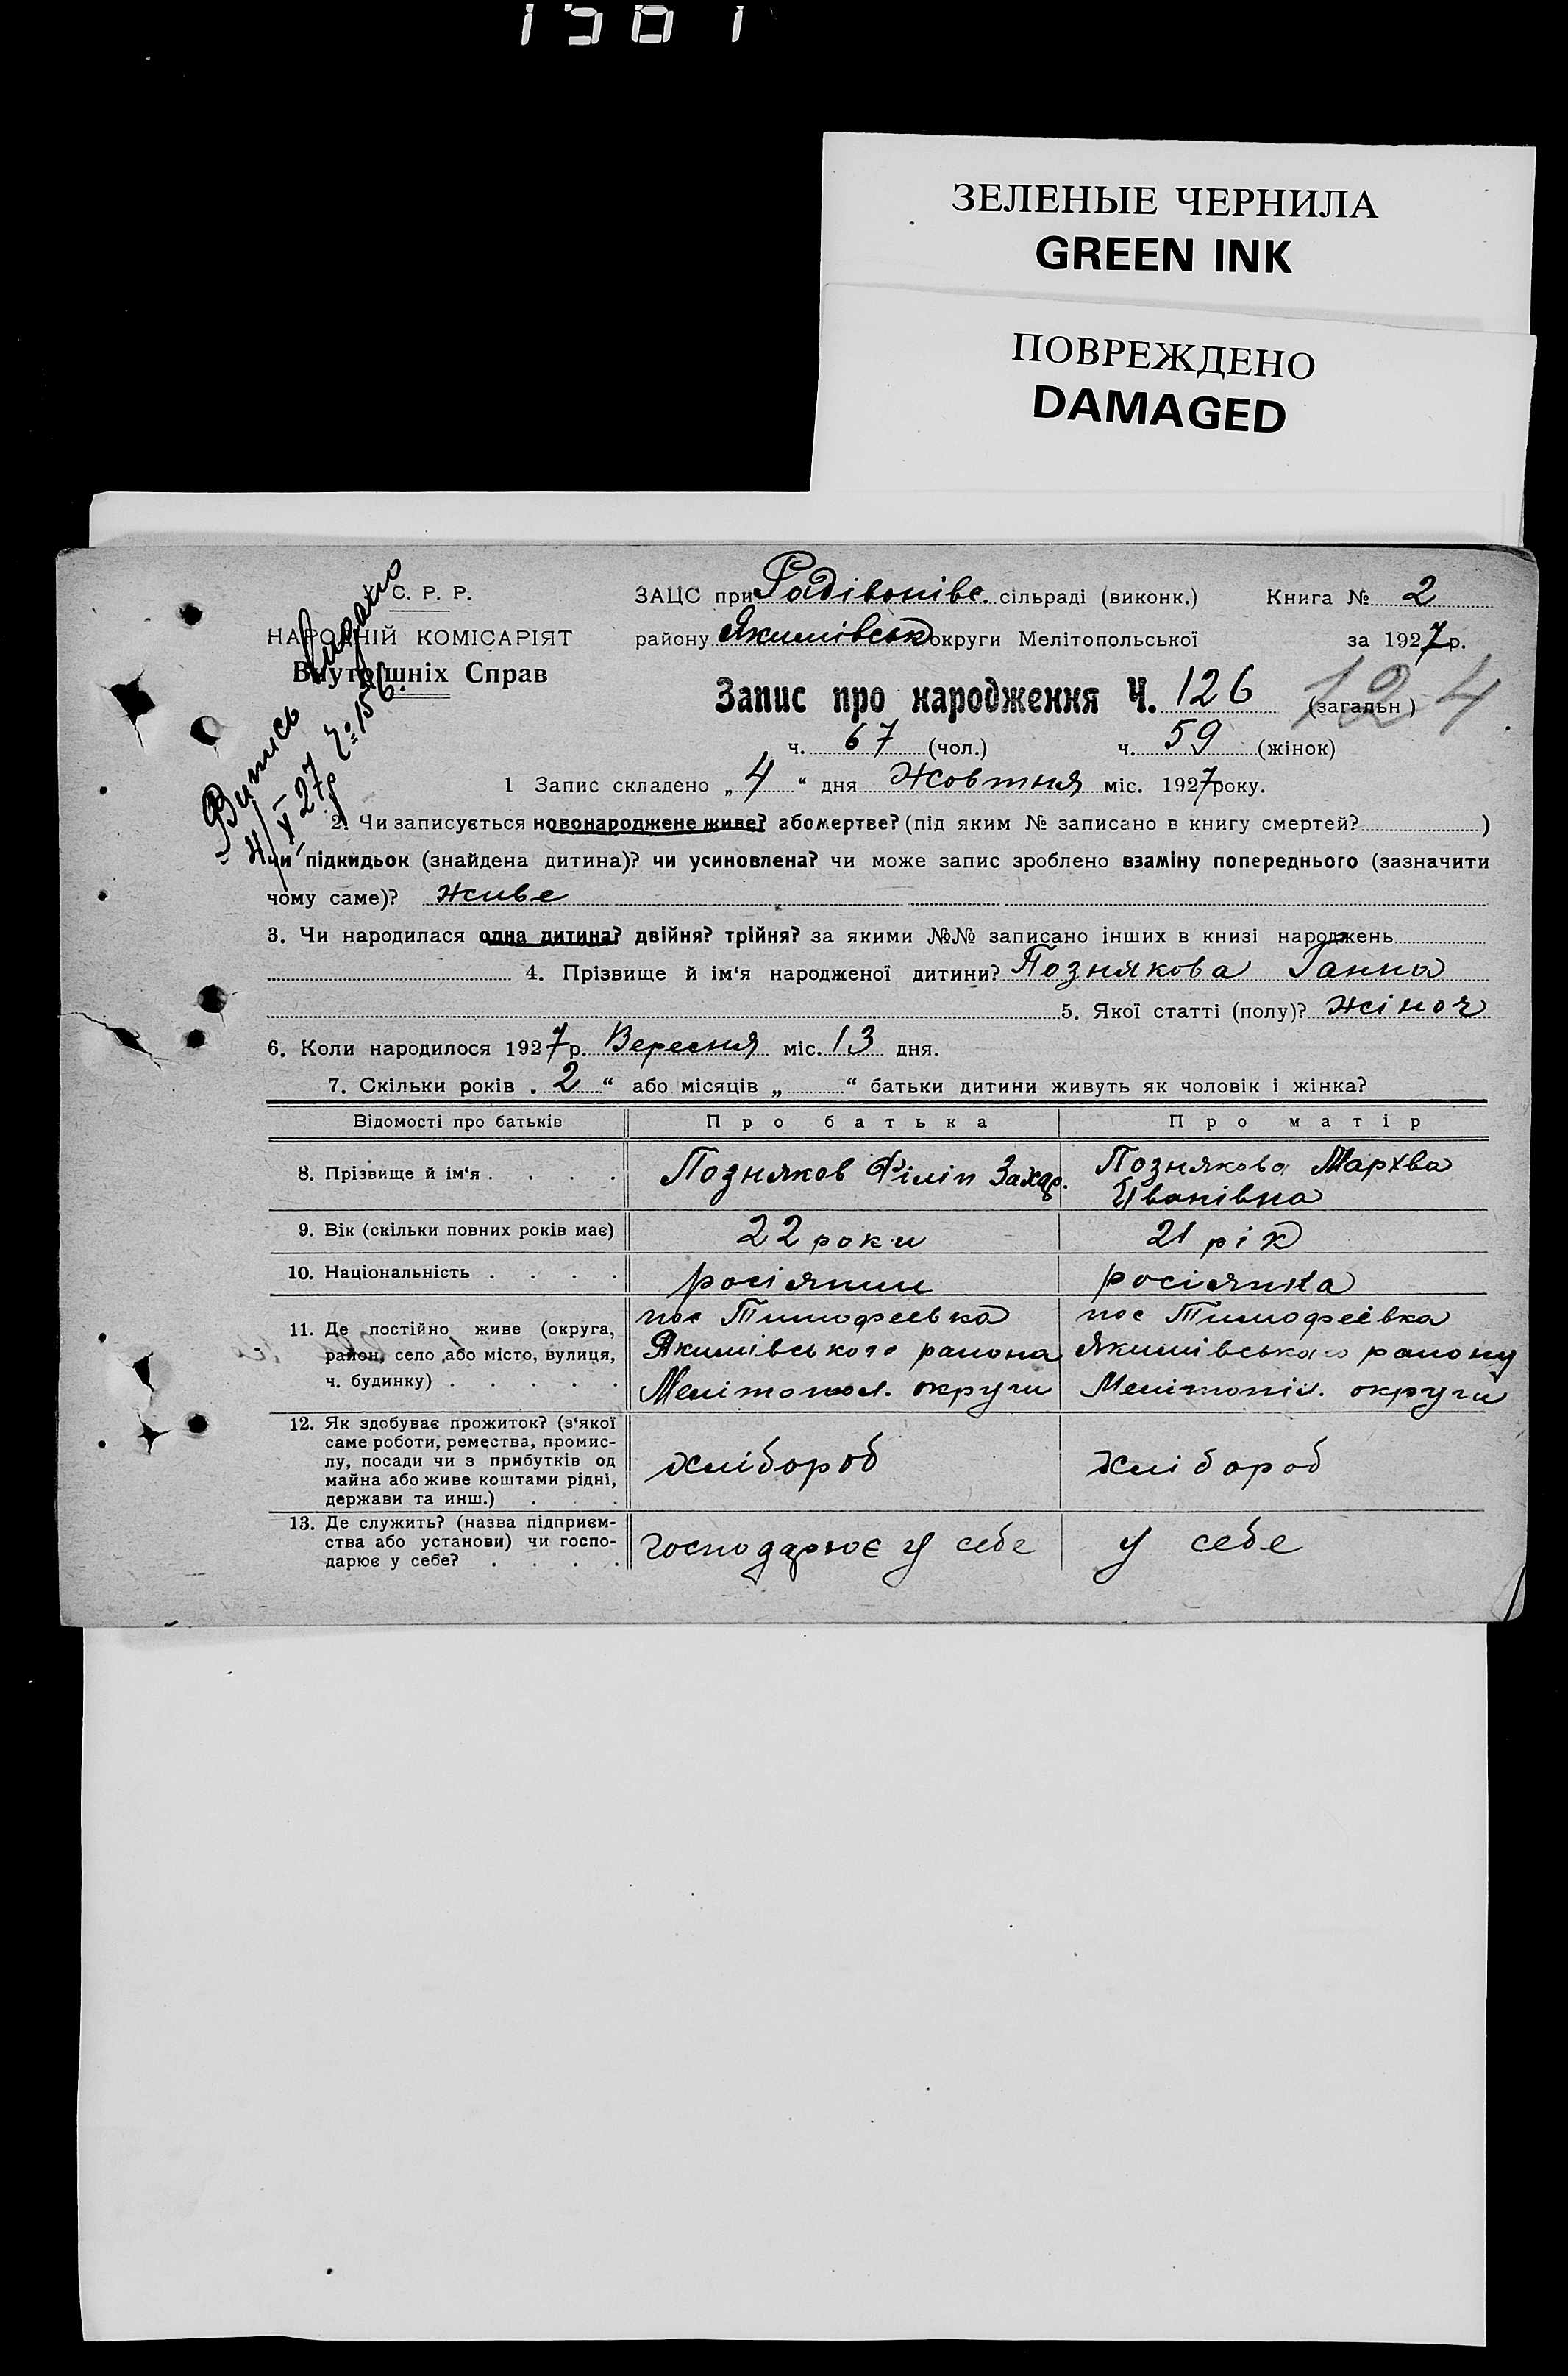 ЗЕЛЕНЫЕ ЧЕРНИЛА
GREEN INK
ПОВРЕЖДЕНО
DAMAGED
С. Р. Р.
НАРОДНІЙ КОМІСАРІЯТ
Внутрішніх Справ
Випись видано
4/X 27 р. Ч: 156.
ЗАЦС при Радівонівс. сільраді (виконк.) Книга № 2
району Якимівськ округи Мелітопольської за 1927 р.
Запис про народження Ч. 126 (загальн) 124
ч. 67 (чол.) ч. 59 (жінок)
1 Запис складено „ 4 “ дня Жовтня міс. 1927 року.
2. Чи записується новонароджене живе? або мертве? (під яким № записано в книгу смертей? )
чи підкидьок (знайдена дитина)? чи усиновлена? чи може запис зроблено взаміну попереднього (зазначити
чому саме)? живе
3. Чи народилася одна дитина? двійня? трійня? за якими №№ записано інших в книзі народжень
4. Прізвище й ім‘я народженої дитини? Познякова Ганна
5. Якої статті (полу)? жіноч
6. Коли народилося 1927 р. Вересня міс. 13 дня.
7. Скільки років „ 2 “ або місяців „ “ батьки дитини живуть як чоловік і жінка?
Відомості про батьків Про батька Про матір
8. Прізвище й ім‘я . . . . Позняков Філіп Захар. Познякова Мархва
Іванівна
9. Вік (скільки повних років має) 22 роки 21 рік
10. Національність . . . . росіянин росіянка
11. Де постійно живе (округа, район, село або місто, вулиця, ч. будинку) . . . . .
пос Тимофеевка
Якимівського района
Мелітопол. округи
пос Тимофеівка
Якимівського району
Мелітопіл. округи
12. Як здобуває прожиток? (з‘якої
саме роботи, ремества, промис-
лу, посади чи з прибутків од
майна або живе коштами рідні,
держави та инш.) . . .
хлібороб хлібороб
13. Де служить? (назва підприєм-
ства або установи) чи госпо-
дарює у себе? . . . .
господарює у себе у себе